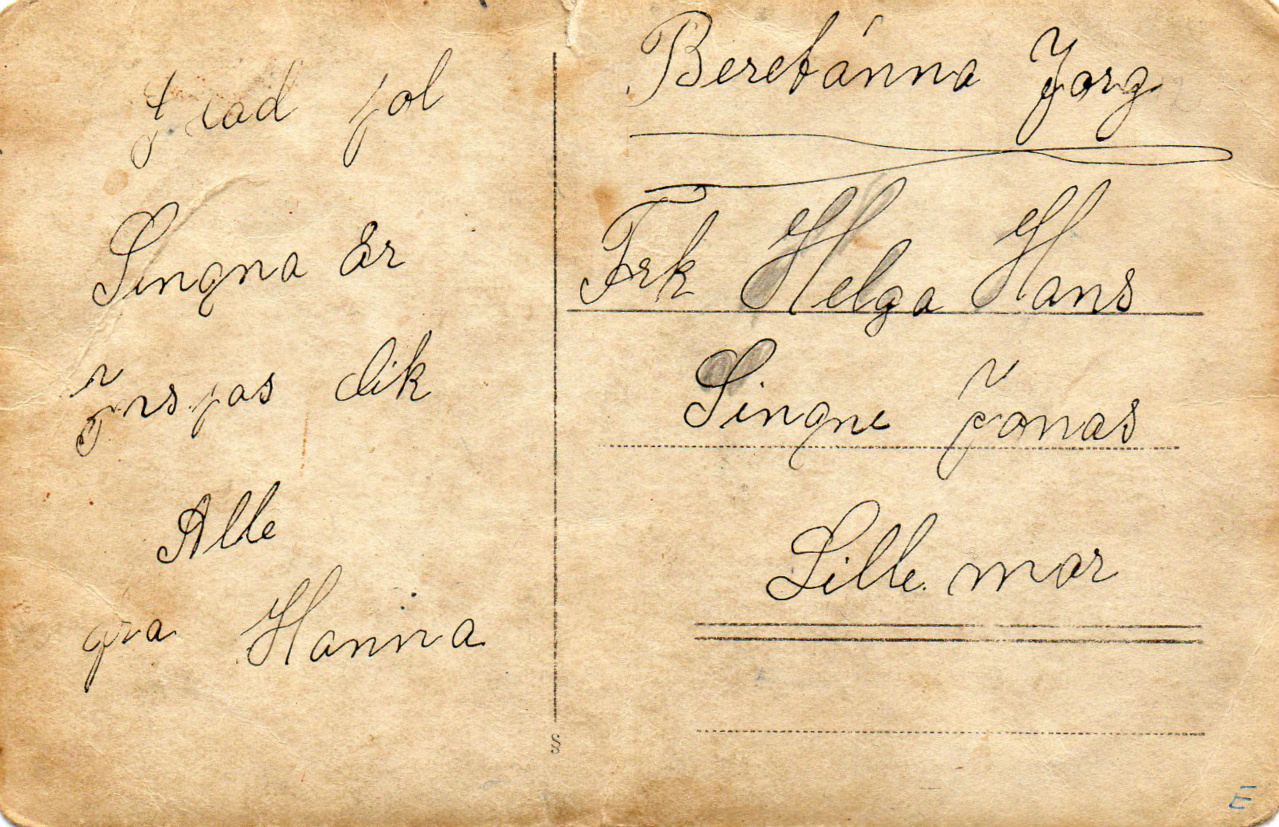 Glad jol
Singna Er
dik
Alle
fra Hanna
Beretánna Jorg
Frk Helga Hans
Singne Jonas
Lille mor
S
E